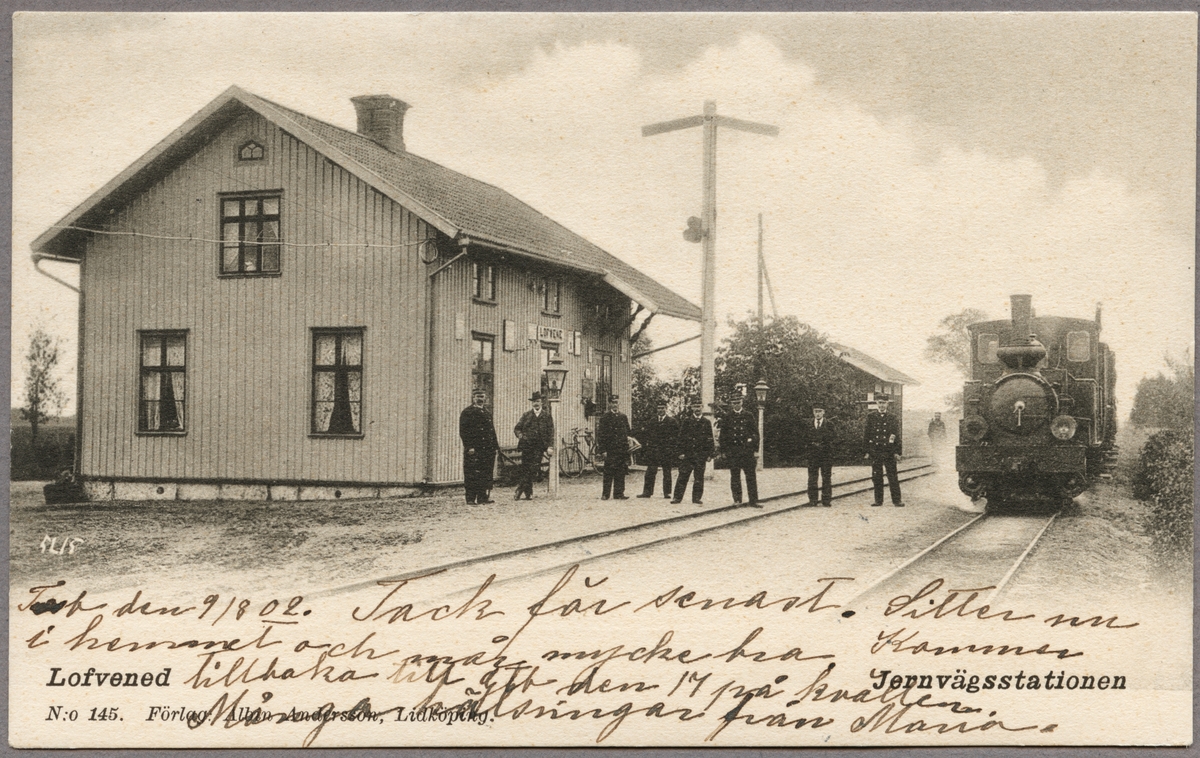 LOFVENE
71/5
den 9/8 02. Tack får senast. Sitter nu
i hemmet och mår mycke bra. Kommer
Lofvened tillbaka till den 17 på kvällen. Jernvägsstationen
Många hälsningar från Maria.
N:o 145. Förlag. Albin Andersson, Lidköping.